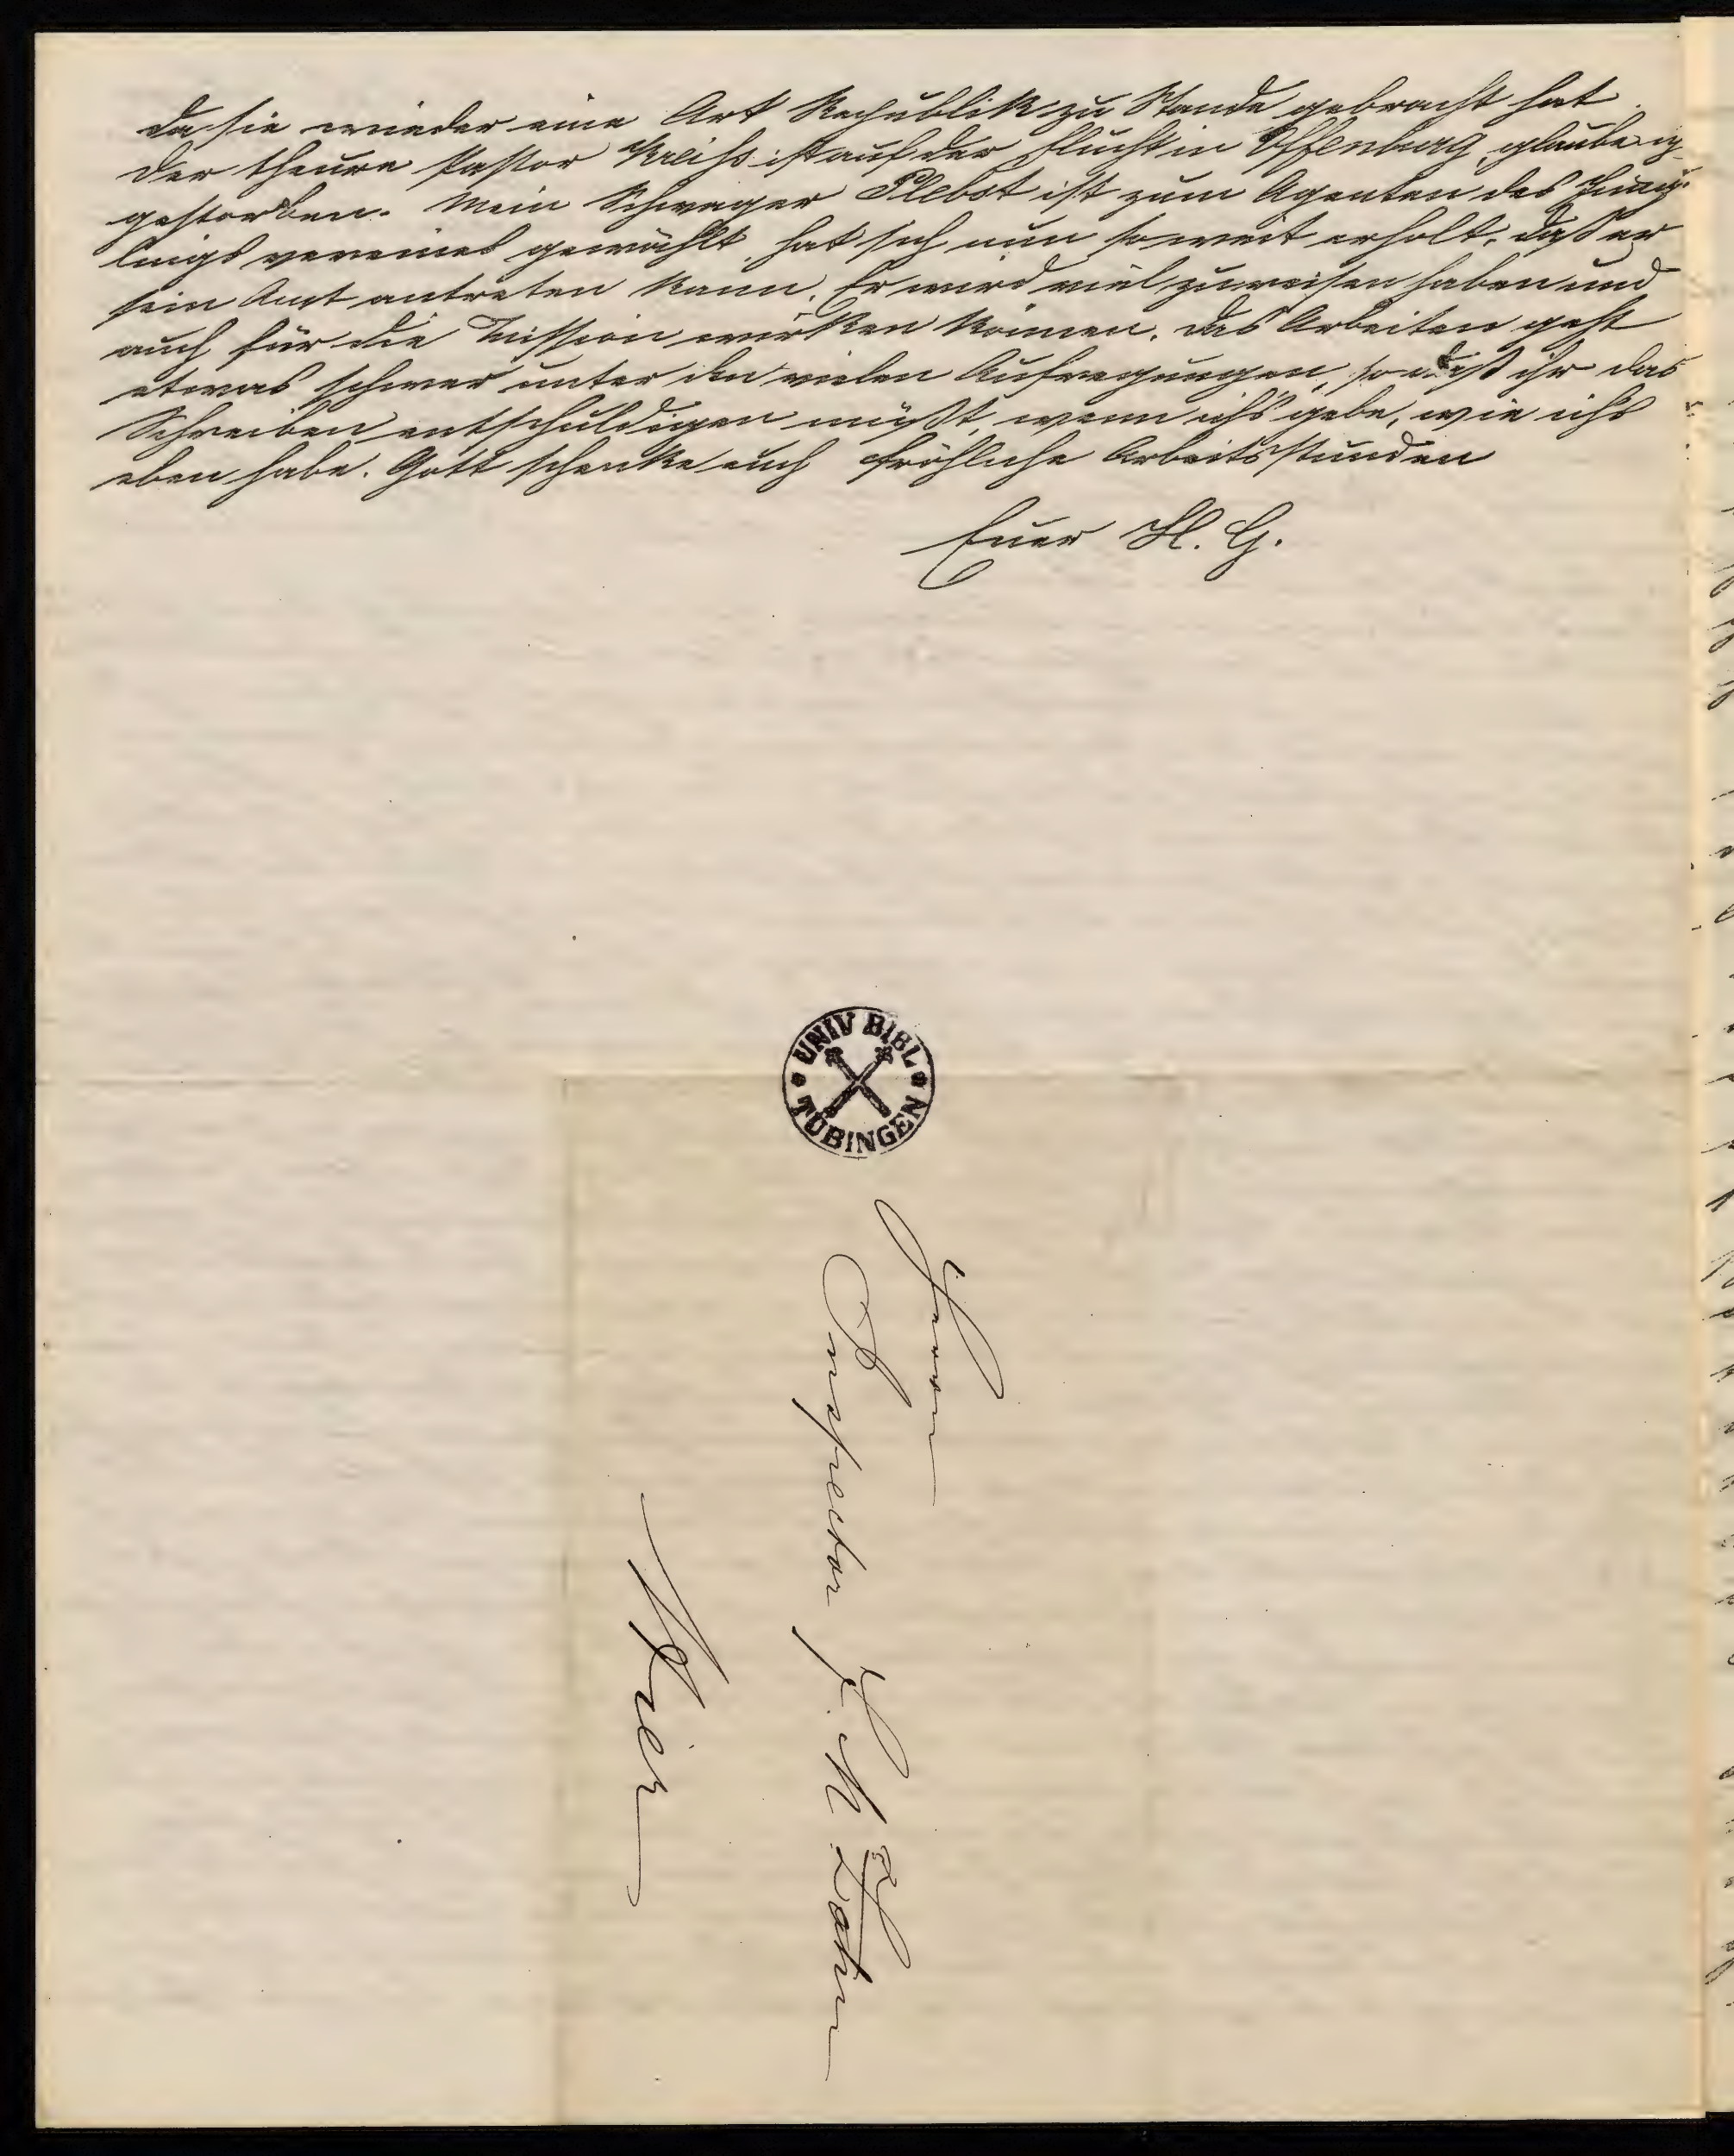 da sie wieder eine Art Republik zu Stande gebracht hat.
Der theure Pastor Kreiss ist auf der Flucht in Offenburg, glaube ich
gestorben. Mein Schwager Plebst ist zum Agenten des Jüng-
lings vereines gewählt, hat sich nun so weit erholt, daß er
sein Amt antreten kann. Er wird viel zu reisen haben und
auch für die Mission wirken können. Das Arbeiten geht
etwas schwer unter den vielen Aufregungen, so daß ihr das
Schreiben entschuldigen müßt, wenn ichs gebe, wie ichs
eben habe. Gott schenke euch fröhliche Arbeitsstunden
Euer H. G.
UNIV BIBL
TÜBINGEN
Herrn
Inspector F. M. Zahn
Hier